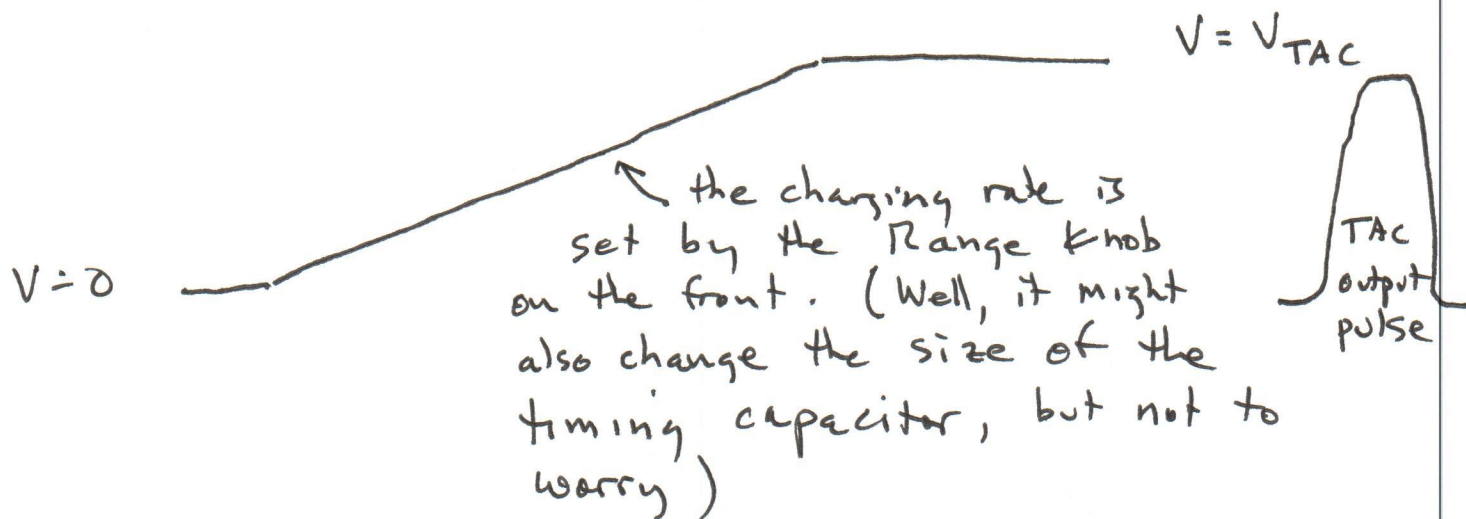 V = V TAC
the charging rate is
set by the Range Knob
on the front. (Well, it might
also change the size of the
timing capacitor, but not to
worry)
V = 0
TAC
output
pulse